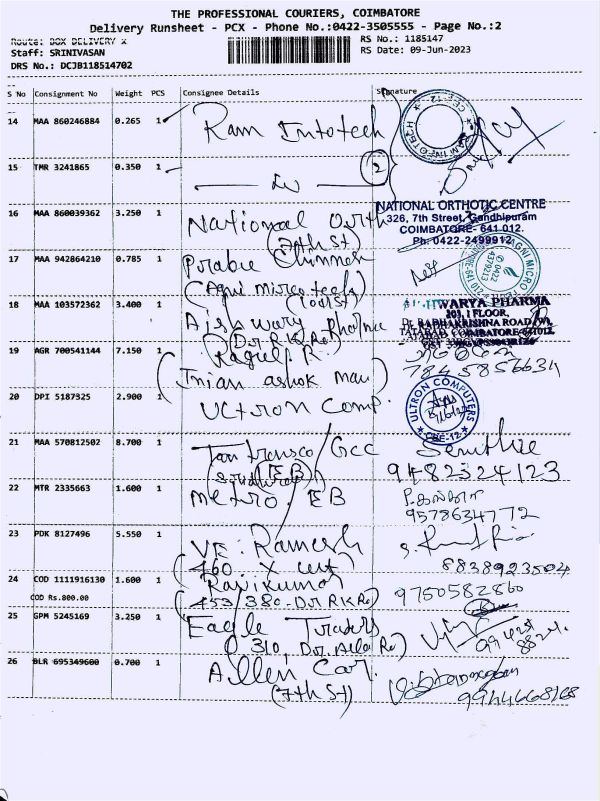 THE PROFESSIONAL COURIERS, COIMBATORE
Delivery Runsheet - PCX - Phone No.:0422-3505555 - Page No.:2
Route: BOX DELIVERY X
RS No.: 1185147
Staff: SRINIVASAN
RS Date: 09-Jun-2023
DRS No.: DCJB118514702
S No Consignment No Weight PCS Consignee Details Signature
14 MAA 860246884 0.265 1 Ram Infotech
15 TMR 3241865 0.350 1 2
NATIONAL ORTHOTIC CENTRE
326, 7th Street, Gandhipuram
COIMBATORE- 641 012.
Ph: 0422-2499912
16 MAA 860039362 3.250 1 National Orth
(7th St)
17 MAA 942864210 0.785 1 Prabu Chinnar
(Agni mirco tech)
(10th St)
AGNI MICRO
18 MAA 103572362 3.400 1 Aiswary Pharma
(Dr R K Ro)
AISHWARYA PHARMA
203, I FLOOR,
Dr. RADHAKRISHNA ROAD
TATABAD, COIMBATORE-641012.
19 AGR 700541144 7.150 1 Raguel R.
7845856634
20 DPI 5187325 2.900 1 Uctron Comp.
ULTRON COMPUTERS
CBE-12
21 MAA 570812502 8.700 1 Tantransco/Gcc
(EB)
9482324123
22 MTR 2335663 1.600 1 metro. EB
9578634772
23 PDK 8127496 5.550 1 VF: Ramesh
(460. X cut)
8838923504
24 COD 1111916130 1.600 1 Ravikumar
COD Rs.800.00
(453/380-Dr RK Ro)
9750582860
25 GPM 5245169 3.250 1 Eagle Traders
26 BLR 695349600 0.700 1 Allen Car.
(7th St)
9944668168